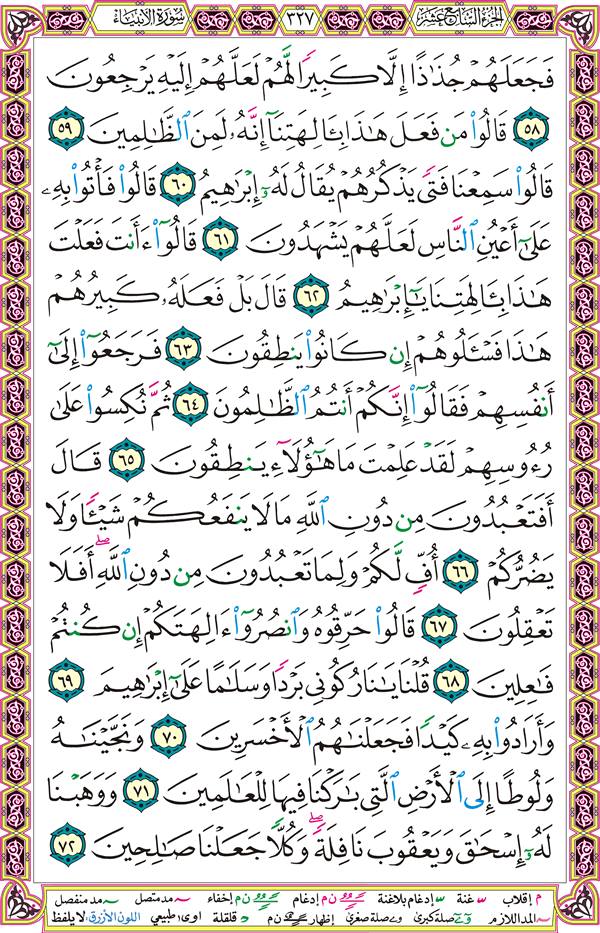 سورة الأنبياء ٣٢٧ الجزء السابع عشر
فَجَعَلَهُمْ جُذَاذًا إِلَّا كَبِيرًا لَّهُمْ لَعَلَّهُمْ إِلَيْهِ يَرْجِعُونَ
٥٨ قَالُوا۟ مَن فَعَلَ هَٰذَا بِـَٔالِهَتِنَآ إِنَّهُۥ لَمِنَ ٱلظَّٰلِمِينَ ٥٩
قَالُوا۟ سَمِعْنَا فَتًى يَذْكُرُهُمْ يُقَالُ لَهُۥٓ إِبْرَٰهِيمُ ٦٠ قَالُوا۟ فَأْتُوا۟ بِهِۦ
عَلَىٰٓ أَعْيُنِ ٱلنَّاسِ لَعَلَّهُمْ يَشْهَدُونَ ٦١ قَالُوٓا۟ ءَأَنتَ فَعَلْتَ
هَٰذَا بِـَٔالِهَتِنَا يَٰٓإِبْرَٰهِيمُ ٦٢ قَالَ بَلْ فَعَلَهُۥ كَبِيرُهُمْ
هَٰذَا فَسْـَٔلُوهُمْ إِن كَانُوا۟ يَنطِقُونَ ٦٣ فَرَجَعُوٓا۟ إِلَىٰٓ
أَنفُسِهِمْ فَقَالُوٓا۟ إِنَّكُمْ أَنتُمُ ٱلظَّٰلِمُونَ ٦٤ ثُمَّ نُكِسُوا۟ عَلَىٰ
رُءُوسِهِمْ لَقَدْ عَلِمْتَ مَا هَٰٓؤُلَآءِ يَنطِقُونَ ٦٥ قَالَ
أَفَتَعْبُدُونَ مِن دُونِ ٱللَّهِ مَا لَا يَنفَعُكُمْ شَيْـًٔا وَلَا
يَضُرُّكُمْ ٦٦ أُفٍّ لَّكُمْ وَلِمَا تَعْبُدُونَ مِن دُونِ ٱللَّهِ ۖ أَفَلَا
تَعْقِلُونَ ٦٧ قَالُوا۟ حَرِّقُوهُ وَٱنصُرُوٓا۟ ءَالِهَتَكُمْ إِن كُنتُمْ
فَٰعِلِينَ ٦٨ قُلْنَا يَٰنَارُ كُونِى بَرْدًا وَسَلَٰمًا عَلَىٰٓ إِبْرَٰهِيمَ ٦٩
وَأَرَادُوا۟ بِهِۦ كَيْدًا فَجَعَلْنَٰهُمُ ٱلْأَخْسَرِينَ ٧٠ وَنَجَّيْنَٰهُ
وَلُوطًا إِلَى ٱلْأَرْضِ ٱلَّتِى بَٰرَكْنَا فِيهَا لِلْعَٰلَمِينَ ٧١ وَوَهَبْنَا
لَهُۥٓ إِسْحَٰقَ وَيَعْقُوبَ نَافِلَةً ۖ وَكُلًّا جَعَلْنَا صَٰلِحِينَ ٧٢
م إقلاب غنة إدغام بلاغنة ن م إدغام ن م إخفاء مد متصل مد منفصل
المد اللازم صلة كبرى صلة صغرى إظهار ن م قلقلة اوى؛ طبيعي اللون الأزرق؛ لا يلفظ